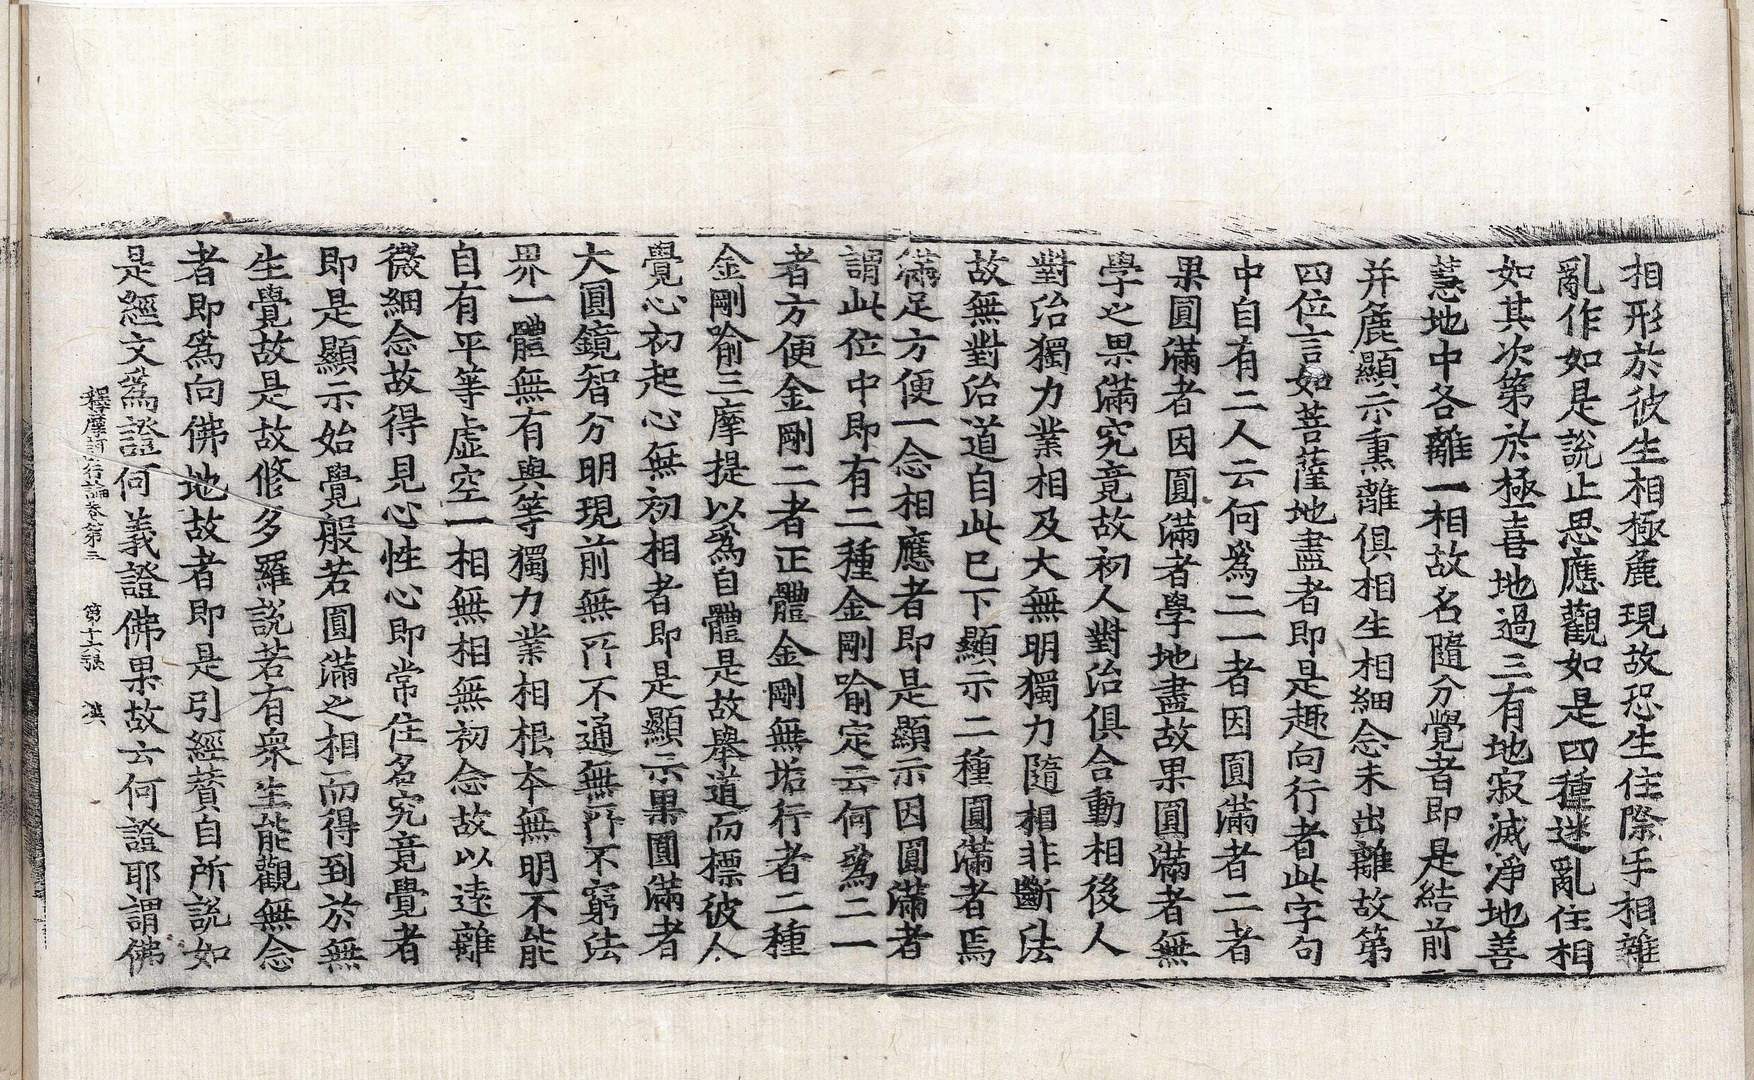 相形於彼生相極麁現故恐生住際手相雜
亂作如是說止思應觀如是四種迷亂住相
如其次第於極喜地過三有地寂滅淨地善
慧地中各離一相故名隨分覺者即是結前二
并麁顯示熏離俱相生相細念未出離故第
四位言如菩薩地盡者即是趣向行者此字句
中自有二人云何爲二一者因圓滿者二者
果圓滿者因圓滿者學地盡故果圓滿者無
學之果滿究竟故初人對治俱合動相後人
對治獨力業相及大無明獨力隨相非斷法
故無對治道自此已下顯示二種圓滿者焉
滿足方便一念相應者即是顯示因圓滿者
謂此位中即有二種金剛喻定云何爲二一
者方便金剛二者正體金剛無垢行者二種
金剛喻三摩提以爲自體是故舉道而標彼人
覺心初起心無初相者即是顯示果圓滿者
大圓鏡智分明現前無所不通無所不窮法
界一體無有與等獨力業相根本無明不能
自有平等虛空一相無相無初念故以遠離
微細念故得見心性心即常住名究竟覺者
即是顯示始覺般若圓滿之相而得到於無
生覺故是故修多羅說若有衆生能觀無念
者即爲向佛地故者即是引經贊自所說如
是經文爲證何義證佛果故云何證耶謂佛
釋摩訶衍論卷第三 第十六張 漠